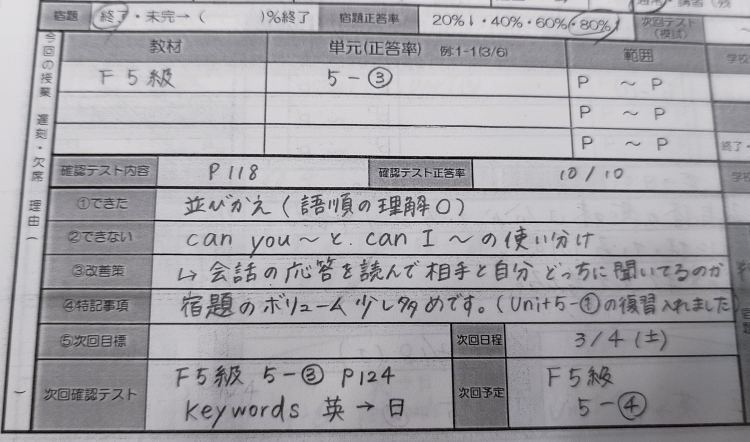 宿題 終了・未完→( )%終了 宿題正答率 20%↓・40%・60%・80%↑ 次回テスト (模試)
今回の授業 遅刻・欠席 理由( )
教材 単元(正答率) 例:1-1(3/6) 範囲
F5級 5-③ P ～ P
P ～ P
P ～ P
確認テスト内容 P118 確認テスト正答率 10/10
①できた 並びかえ(語順の理解○)
②できない can you～と. can I～の使い分け
③改善策 ↳会話の応答を読んで相手と自分どっちに聞いてるのか
④特記事項 宿題のボリューム少し多めです。(Unit5-①の復習入れました)
⑤次回目標 次回日程 3/4(土)
次回確認テスト F5級 5-③ P124 次回予定 F5級
Keywords 英→日 5-④